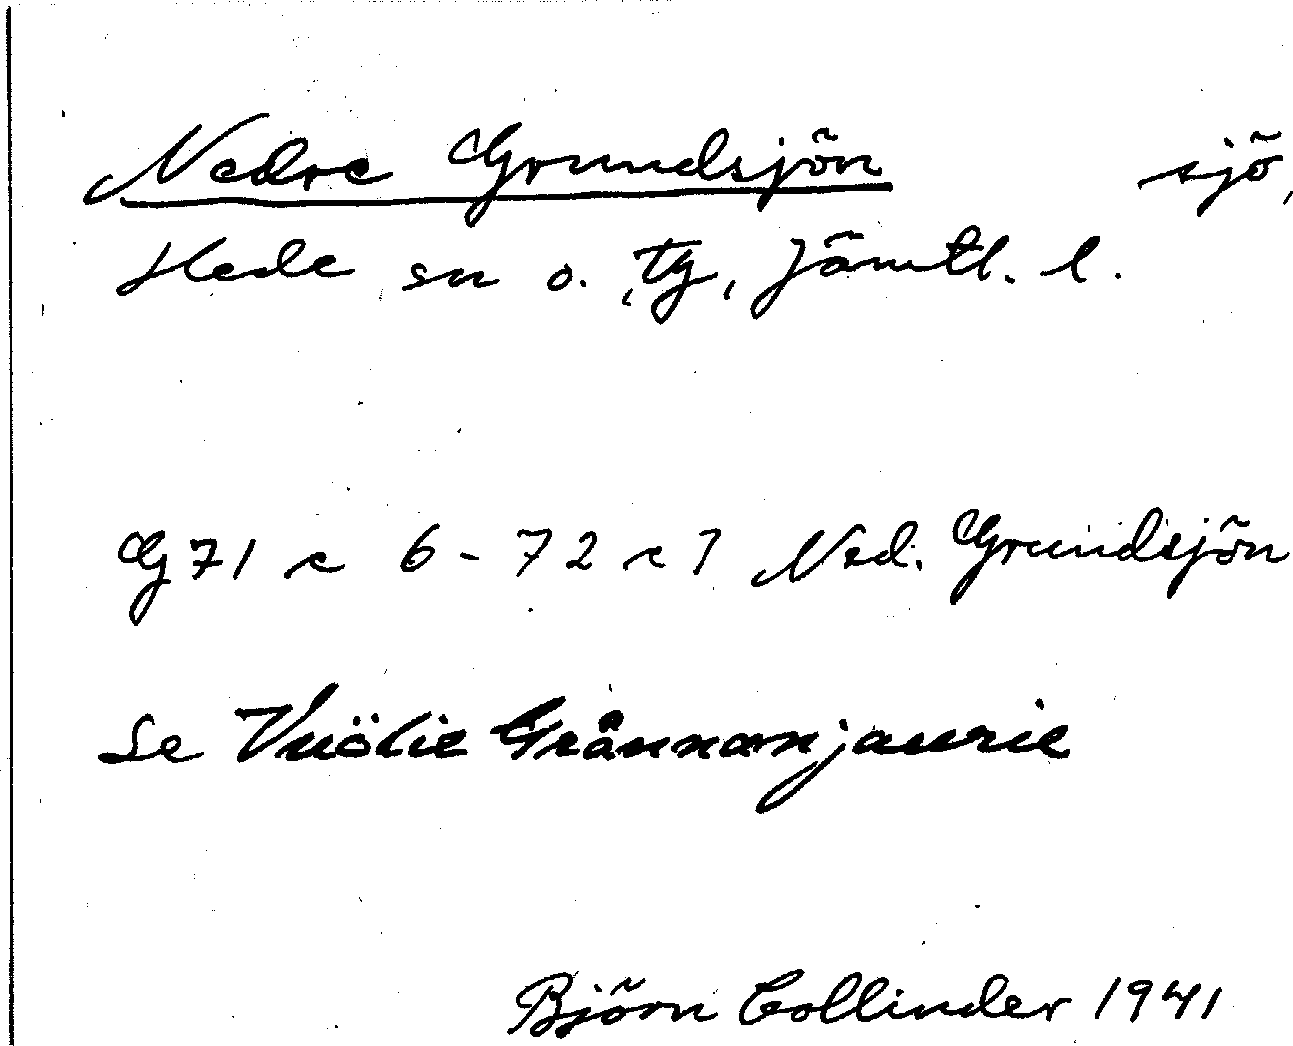 Nedre Grundsjön sjö,
Hede sn o. tg, Jämtl. l.
G 71 c 6 - 72 c 7 Ned. Grundsjön
Se Vuölie Grånnanjaurie
Björn Collinder 1941